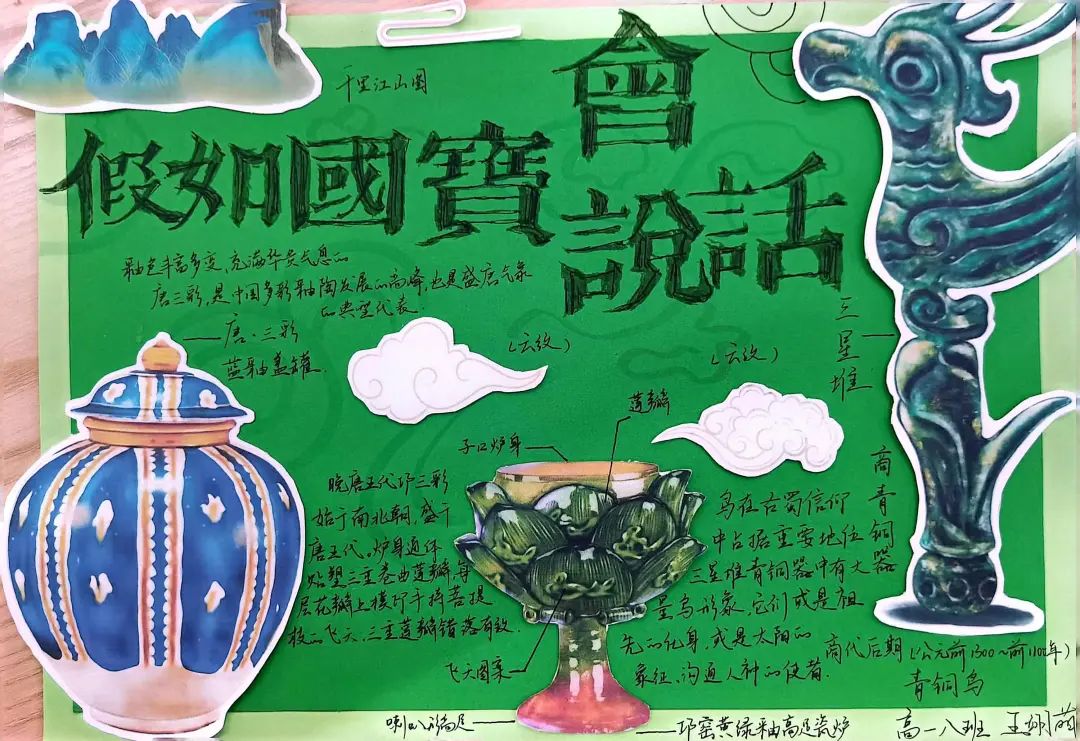 千里江山图
假如國寶會說話
釉色丰富多变,充满华贵气息的
唐三彩,是中国多彩釉陶发展的高峰,也是盛唐气象
的典型代表
唐·三彩
蓝釉盖罐.
(云纹)
(云纹)
三星堆
商 青铜器
莲瓣
子口炉身
晚唐五代邛三彩
始于南北朝,盛于
唐五代,炉身通体
贴塑三重卷曲莲瓣,每
层花瓣上模印手持菩提
枝的飞天,三重莲瓣错落有致.
飞天图案
喇叭形高足
邛窑黄绿釉高足瓷炉
鸟在古蜀信仰
中占据重要地位
三星堆青铜器中有大
量鸟形象,它们或是祖
先的化身,或是太阳的
象征、沟通人神的使者.
商代后期(公元前1300~前1100年)
青铜鸟
高一八班 王